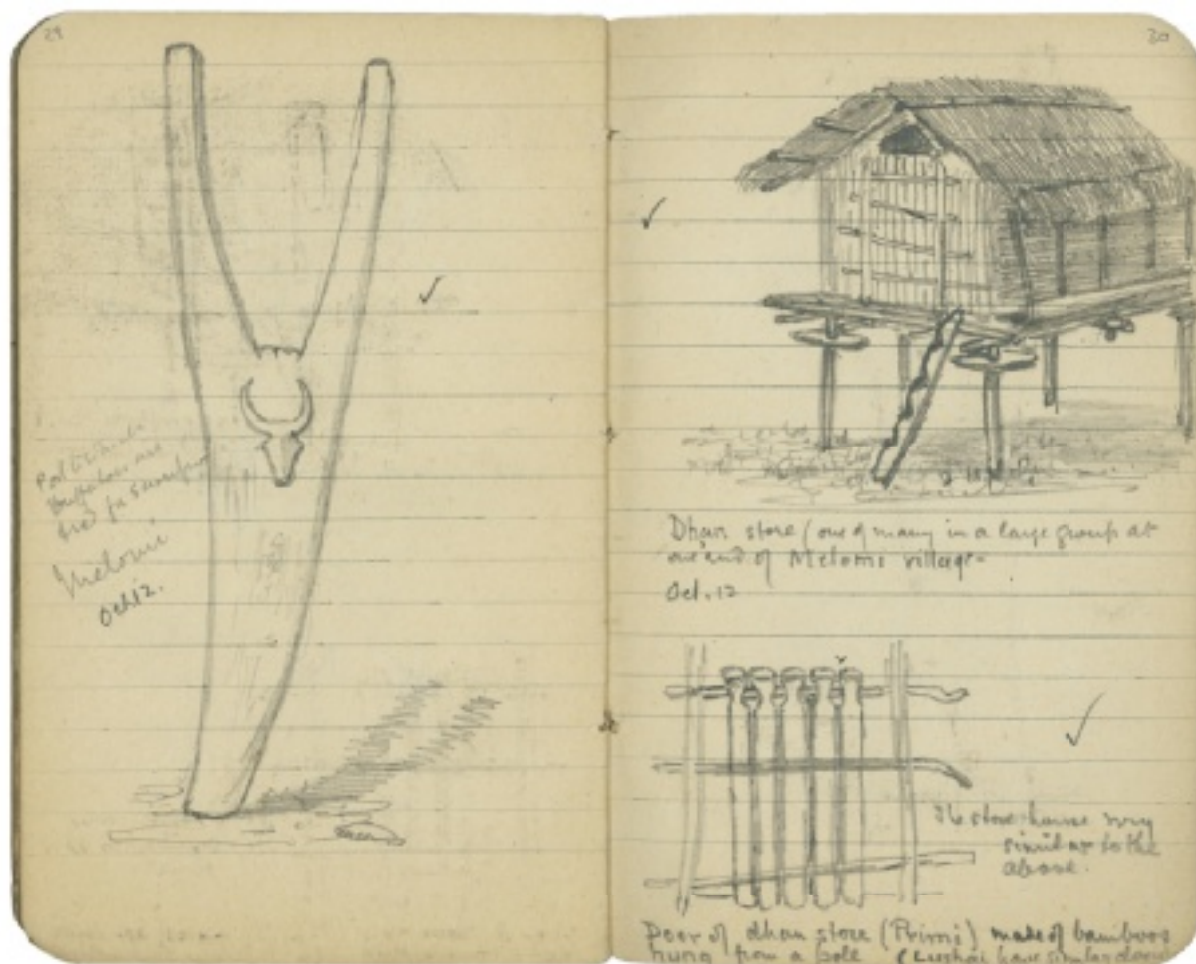 29
Post to which
Buffaloes are
tied for sacrifice
Melomi
Oct. 12.
30
Dhan store (one of many in a large group at
one end of Melomi village-
Oct. 12
store house very
similar to the
above.
Door of dhan store (Primi) made of bamboos
hung from a pole (Lushai have similar doors